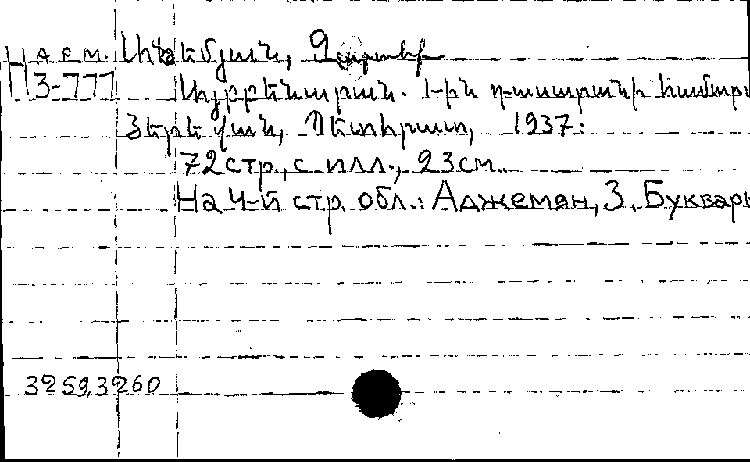 Н А Е М. Աճեմյան, Զարուհի
П3-777 Այբբենարան. 1-ին դասարանի համար
Յերեվան, Պետհրատ, 1937:
72 стр., с илл., 23 см.
На 4-й стр. обл.: Аджемян, З. Букварь
3259,3260